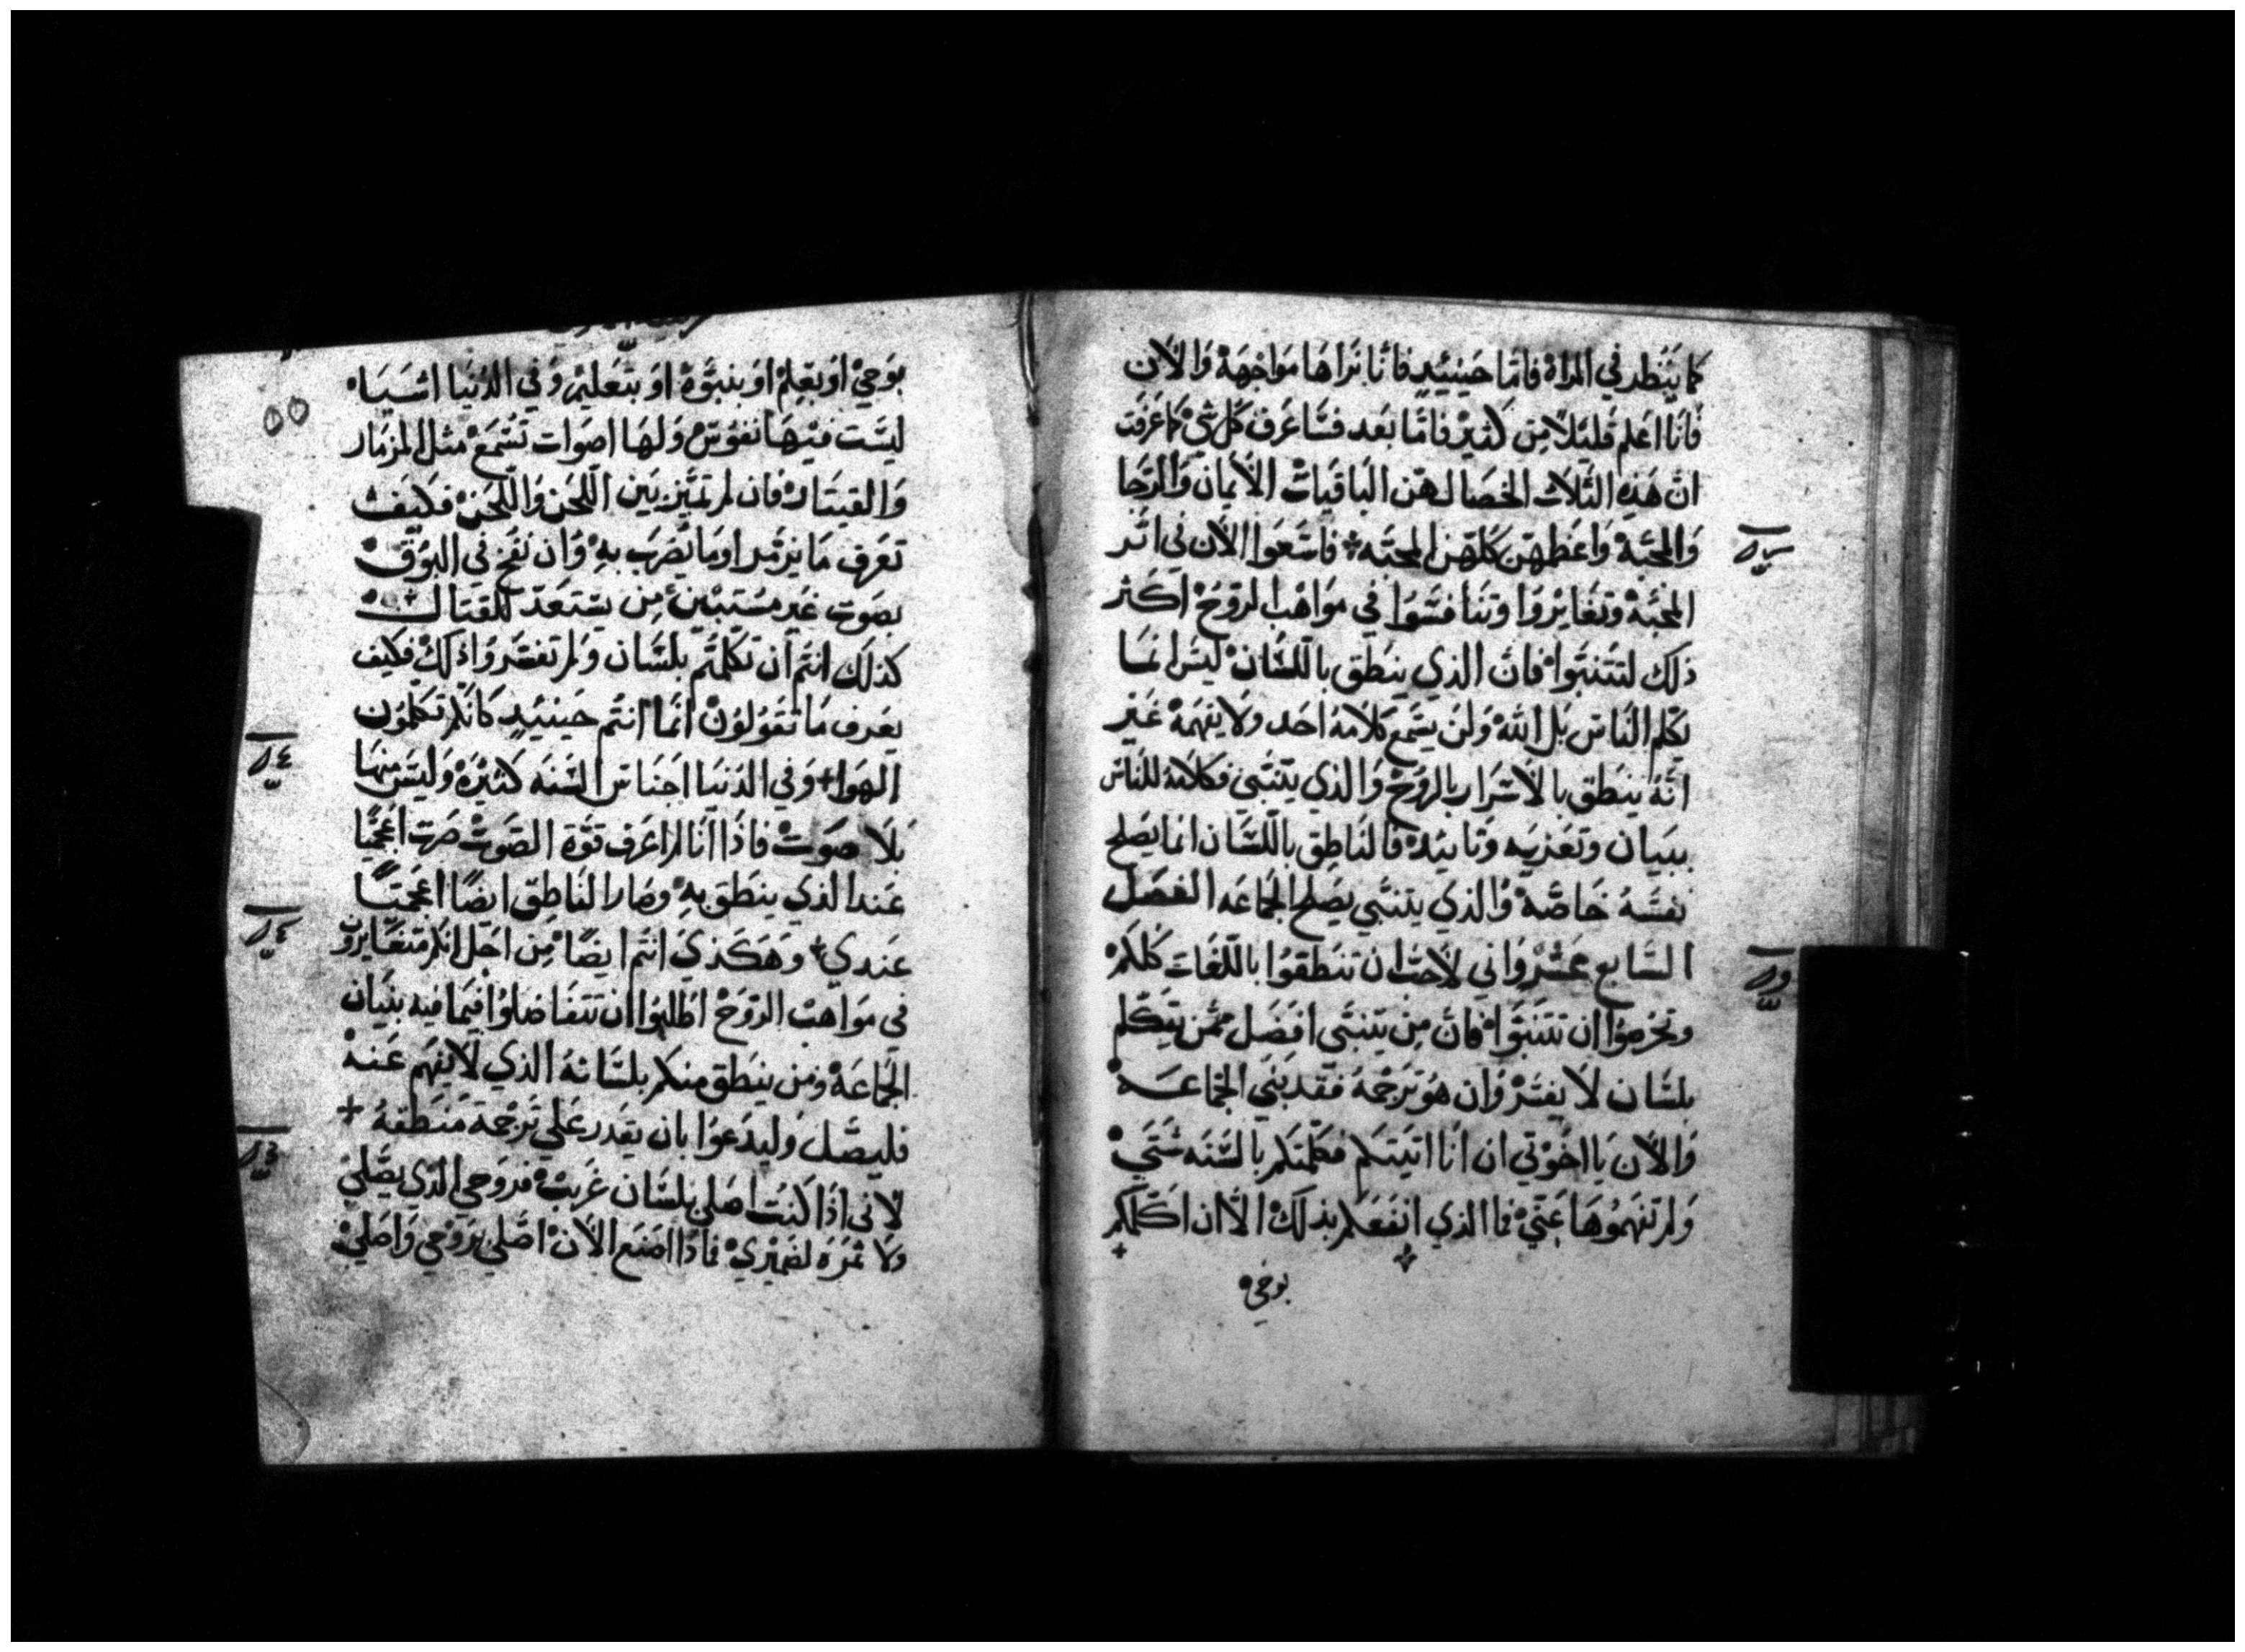 كما ينظر في المراة فاما حينيئد فانا نراها مواجهة والان
فانا اعلم قليلا من كثير فاما بعد فساعرف كل شي كما عرفت
ان هذه الثلاث الخصال هن الباقيات الايمان والرجا
والمحبة واعظمهن كلهن المحبه فاسعوا الان في اثر
المحبة وتغايروا وتنافسوا في مواهب الروح اكثر
ذلك لتتنبوا فان الذي ينطق باللسان ليس انما
يكلم الناس بل الله ولن يسمع كلامه احد ولا يفهمه غير
انه ينطق بالاسرار بالروح والذي يتنبي فكلامه للناس
ببيان وتعزيه وتاييد فالناطق باللسان انما يصلح
نفسه خاصة والذي يتنبي يصلح الجماعه الفصل
السابع عشر واني لاحب ان تنطقوا باللغات كلكم
وتحرصوا ان تتنبوا فان من يتنبي افضل ممن يتكلم
بلسان لا يفسر وان هو ترجمه فقد بني الجماعة
والان يا اخوتي ان انا اتيتكم فكلمتكم بالسنه شتي
ولم تفهموها عني فما الذي انفعكم بذلك الا ان اكلمكم
بوحي
٥٥
بوحي او بعلم او بنبوة او بتعليم وفي الدنيا اشيا
ليست فيها نفوس ولها اصوات تسمع مثل المزمار
والقيتار فان لم تميز بين اللحن واللحن فكيف
تعرف ما يزمر او ما يضرب به وان نفخ في البوق
بصوت غير مستبين من يستعد للقتال
كذلك انتم ان تكلمتم بلسان ولم تفسروا ذلك فكيف
يعرف ما تقولون انما انتم حينيئد كانكم تكلمون
الهوا وفي الدنيا اجناس السنه كثيرة وليس منها
بلا صوت فاذا انا لم اعرف قوة الصوت صرت اعجميا
عند الذي ينطق به وصار الناطق ايضا اعجميا
عندي وهكذي انتم ايضا من اجل انكم متغايرون
في مواهب الروح اطلبوا ان تتفاضلوا فيما فيه بنيان
الجماعة ومن ينطق منكم بلسانه الذي لا يفهم عنه
فليصل وليدعوا بان يقدر علي ترجمة منطقه
لاني اذا كنت اصلي بلسان غريب فروحي الذي يصلي
ولا ثمره لضميري فماذا اصنع الان اصلي بروحي واصلي